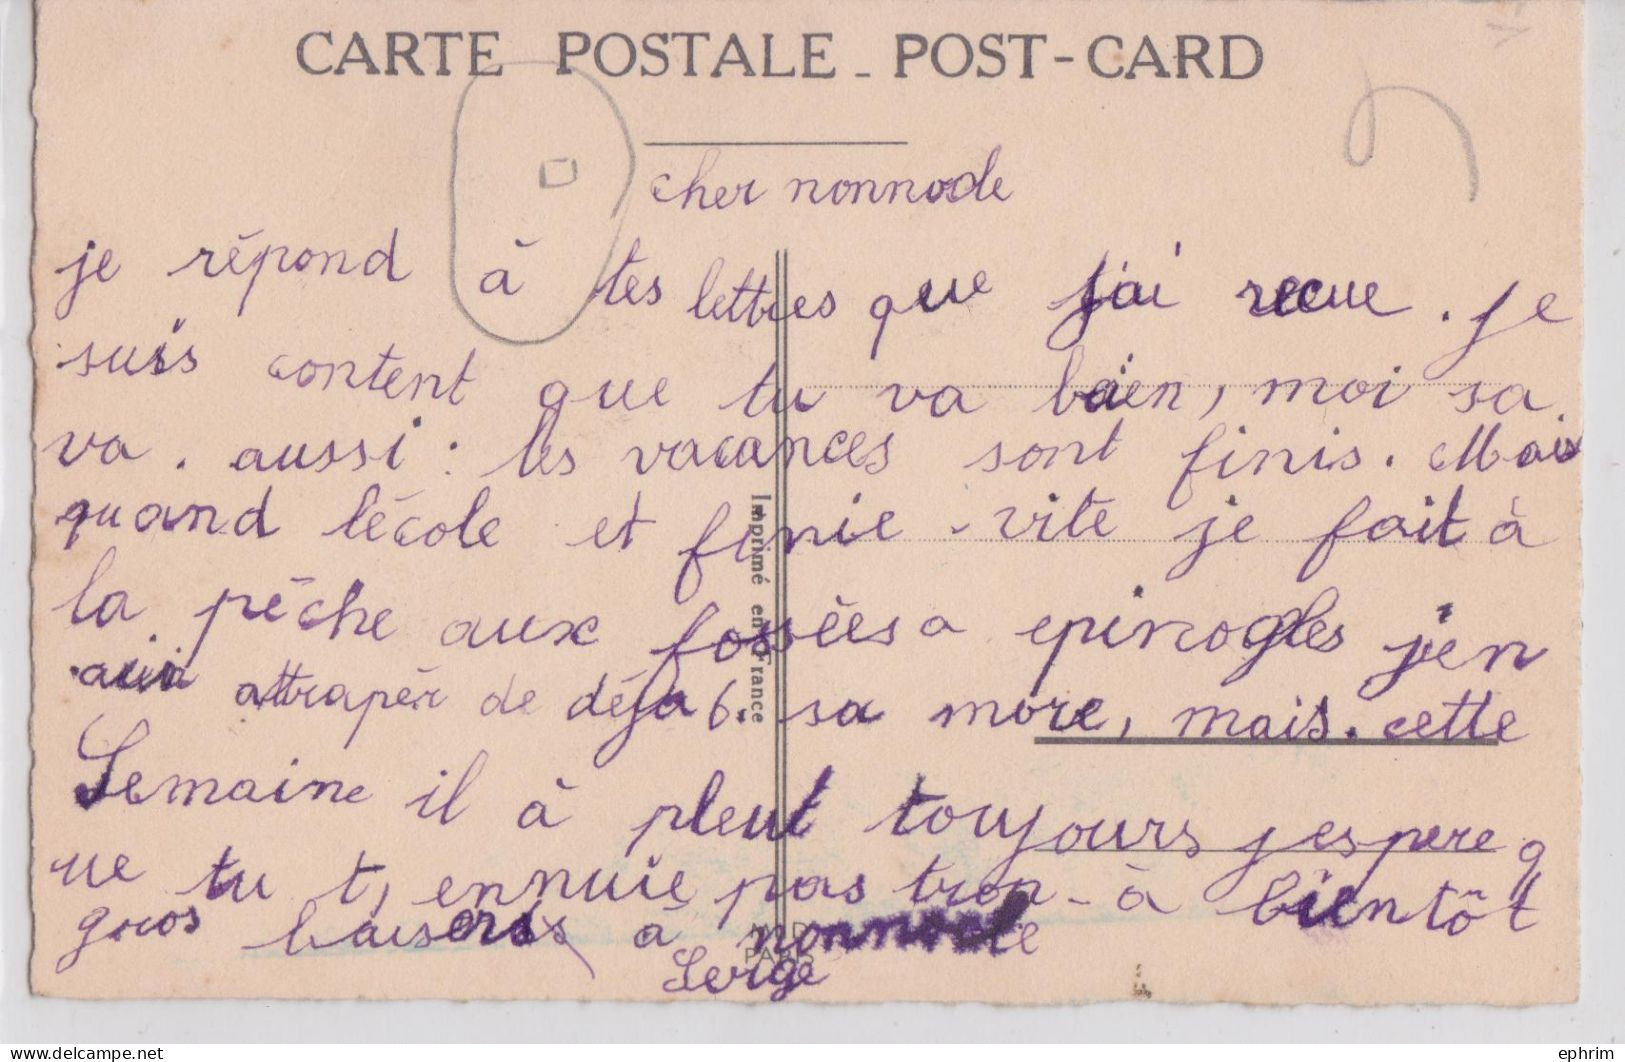 CARTE POSTALE - POST-CARD
cher nonnode
je répond à tes lettres que j'ai recue. je
suis content que tu va bien, moi sa
va. aussi : les vacances sont finis. Mais
quand l'école et finie - vite je fait à
la pêche aux fossées a epinogles j'en
ai attrapér de déja 6. sa more, mais. cette
Semaine il à pleut toujours j'espere q
ue tu t, ennuie pas trop - à bientôt
gros baisers à nonnode
Serge
Imprimé en France
M.D.
PARIS
ephrim
© delcampe.net